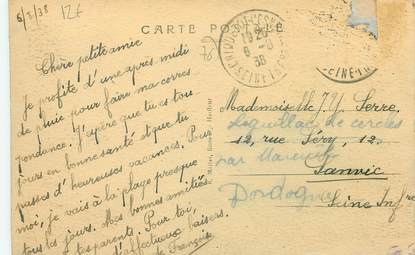 6/8/38
12f
CARTE POSTALE
Chère petite amie
Je profite d'une après midi
de pluie pour faire ma corres
pondance. J'espère que tu es tou
jours en bonne santé et que tu
passes d'heureuses vacances. Pour
moi, je vais à la plage presque
tous les jours. Mes bonnes amitiés
à tes parents. Pour toi,
d'affectueux baisers.
François
19 25
6 - 8
38
SEINE INF
Mademoiselle J. Y. Serre,
12, rue Féry, 12
Sanvic
Seine Infre
Leguillac de cercles
par Mareuil
Dordogne